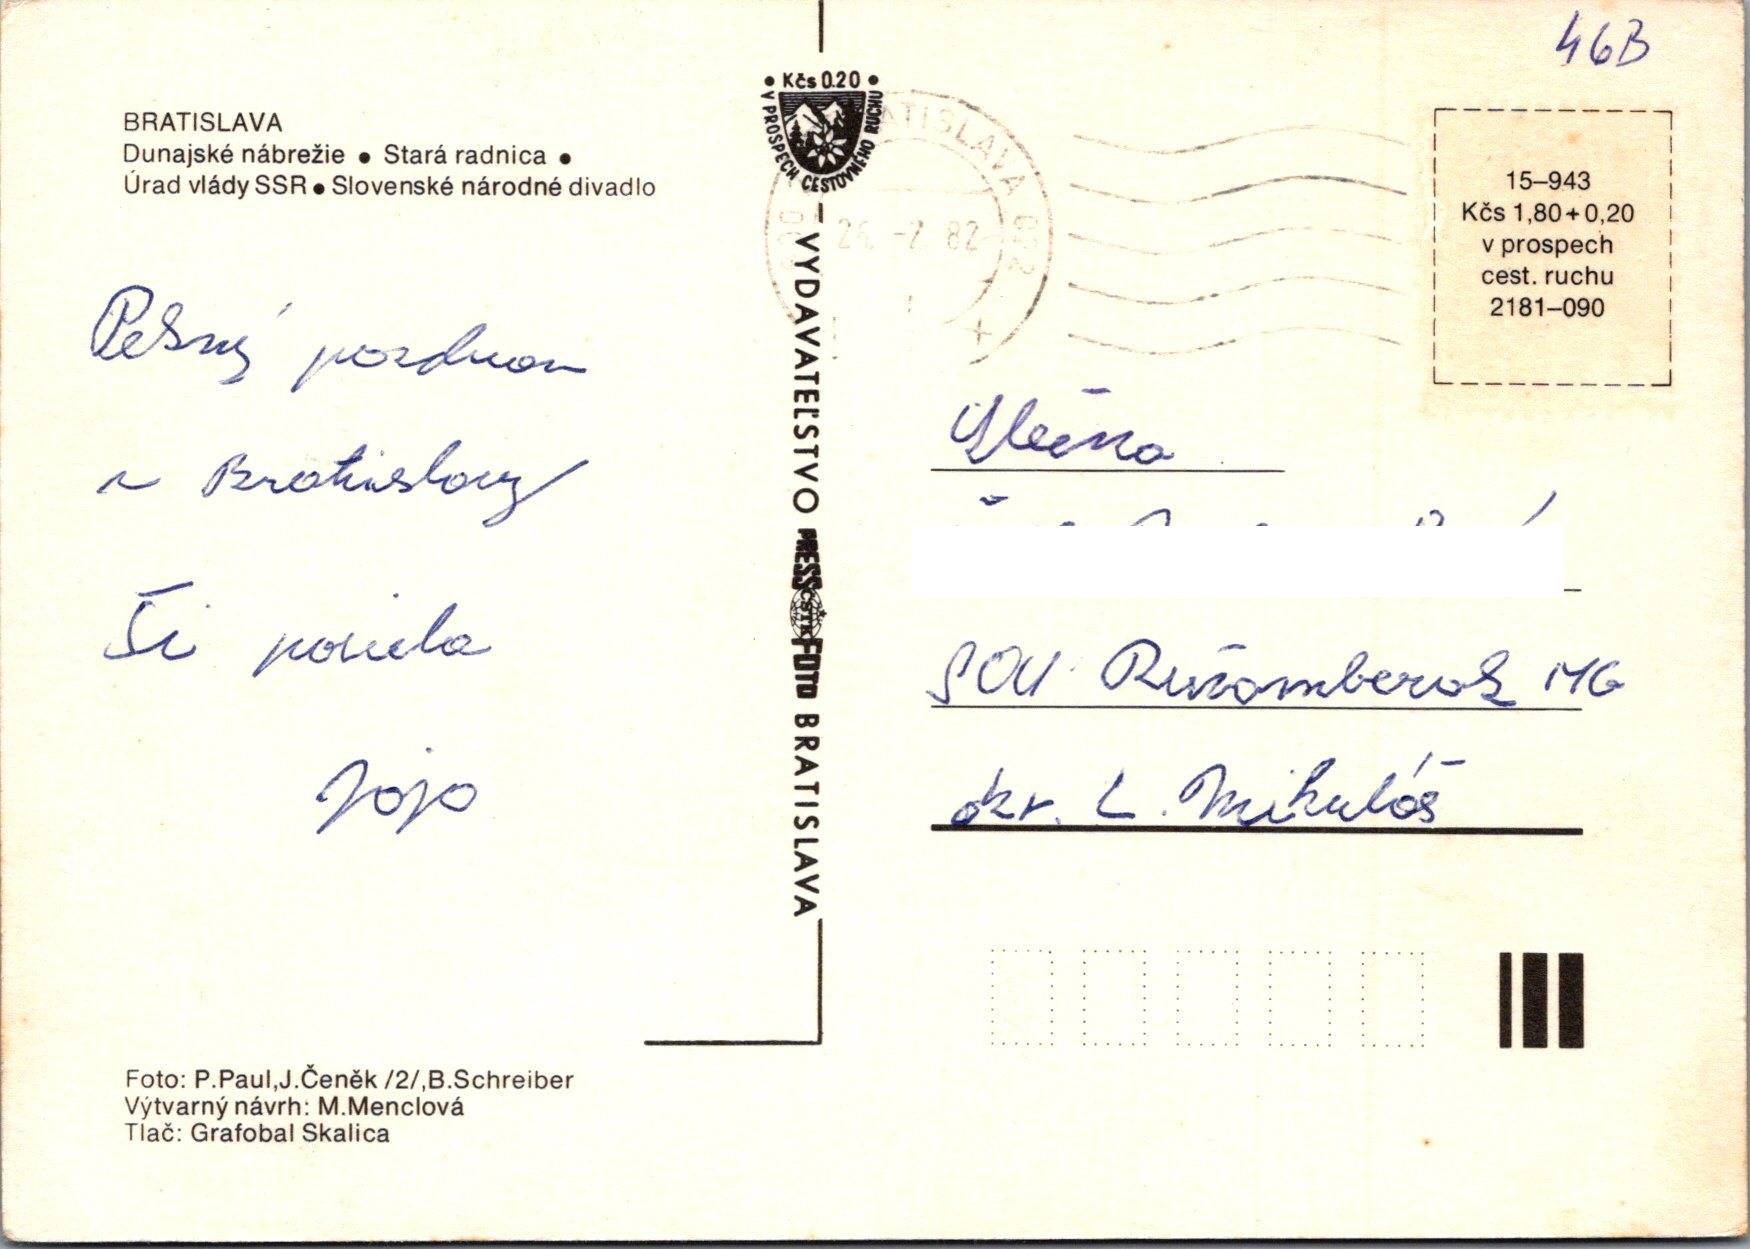 46B
BRATISLAVA
Dunajské nábrežie • Stará radnica •
Úrad vlády SSR • Slovenské národné divadlo
• Kčs 0.20 •
V PROSPECH CESTOVNÉHO RUCHU
BRATISLAVA 022
26. -7. 82
15–943
Kčs 1,80+0,20
v prospech
cest. ruchu
2181–090
Pekný pozdrav
z Bratislavy
Ti posiela
Jojo
Slečna
SOU Ružomberok MG
okr. L. Mikuláš
VYDAVATEĽSTVO PRESSFOTO BRATISLAVA
ČSTK
Foto: P.Paul,J.Čeněk /2/,B.Schreiber
Výtvarný návrh: M.Menclová
Tlač: Grafobal Skalica